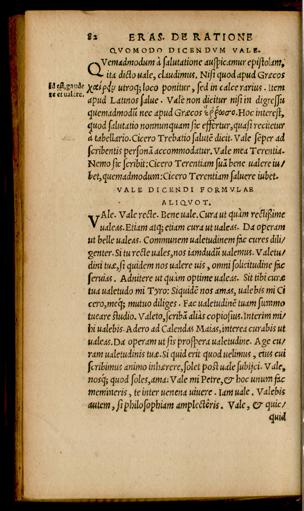 82 ERAS. DE RATIONE
QVOMODO DICENDVM VALE.
Quemadmodum à salutatione auspicamur epistolam,
ita dicto uale, claudimus. Nisi quod apud Græcos
Id est, gaude
re et ualere.
χαίρειν utroq; loco ponitur, sed in calce rarius. Item
apud Latinos salue. Vale non dicitur nisi in digressu
quemadmodũ nec apud Græcos ἔρρωσο. Hoc interest,
quod salutatio nonnunquam sic effertur, quasi recitetur
à tabellario. Cicero Trebatio salutē dicit. Vale semper ad
scribentis personã accommodatur. Vale mea Terentia.
Nemo sic scribit: Cicero Terentiam suã bene ualere iu/
bet, quemadmodum: Cicero Terentiam saluere iubet.
VALE DICENDI FORMVLAE
ALIQVOT.
VAle. Vale recte. Bene uale. Cura ut quàm rectissime
ualeas. Etiam atq; etiam cura ut ualeas. Da operam
ut belle ualeas. Communem ualetudinem fac cures dili/
genter. Si tu recte uales, nos iamdudũ ualemus. Valetu/
dini tuæ, si quidem nos ualere uis, omni solicitudine fac
seruias. Adnitere ut quàm optime ualeas. Sit tibi curæ
tua ualetudo mi Tyro: Siquidē nos amas, ualebis mi Ci
cero, meq; mutuo diliges. Fac ualetudinē tuam summo
tueare studio. Valeto, scribã aliàs copiosius. Interim mi/
hi ualebis. Adero ad Calendas Maias, interea curabis ut
ualeas. Da operam ut sis prospera ualetudine. Age cu/
ram ualetudinis tuæ. Si quid erit quod uelimus, eius cui
scribimus animo inhærere, solet post uale subijci. Vale,
nosq; quod soles, ama: Vale mi Petre, & hoc unum fac
memineris, te inter uenena uiuere. Iam uale. Valebis
autem, si philosophiam amplecteris. Vale, & quic/
quid